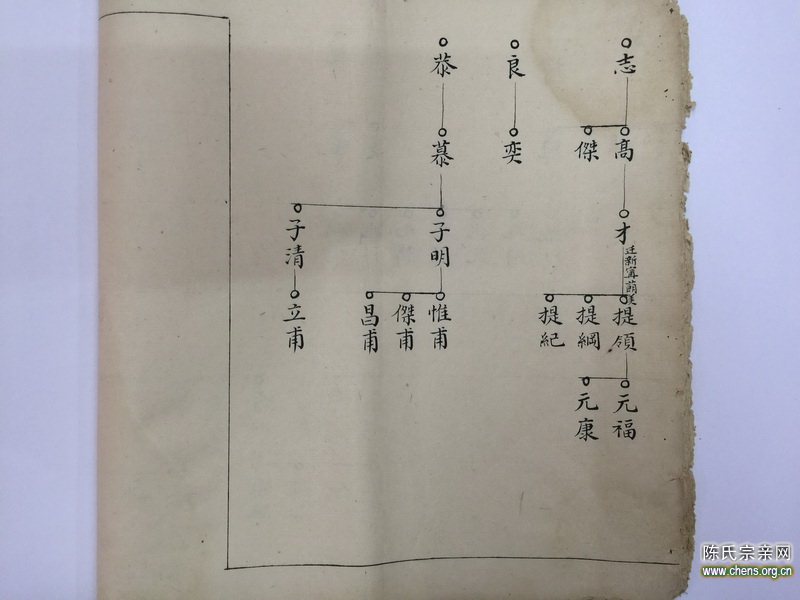 志
髙
傑
才
迁新寗
提領
提綱
提紀
元福
元康
良
奕
恭
慕
子明
子清
惟甫
傑甫
昌甫
立甫
陈氏宗亲网
www.chens.org.cn